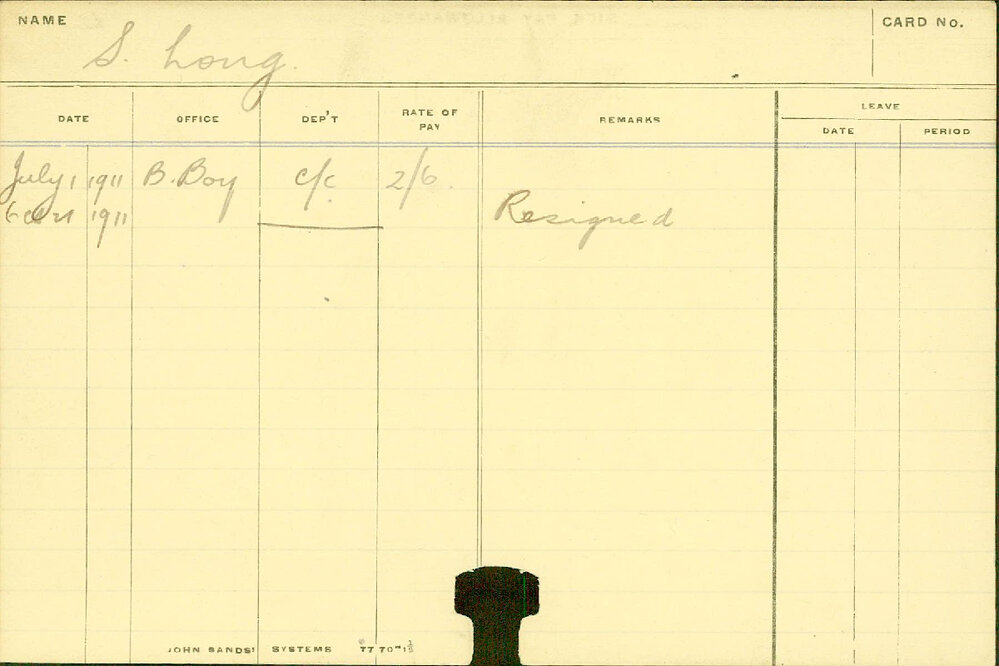 NAME
S. Long.
CARD No.
DATE OFFICE DEP'T RATE OF PAY REMARKS LEAVE
DATE PERIOD
July 1 1911 B. Boy C/C. 2/6.
1911 Resigned
JOHN SANDS' SYSTEMS